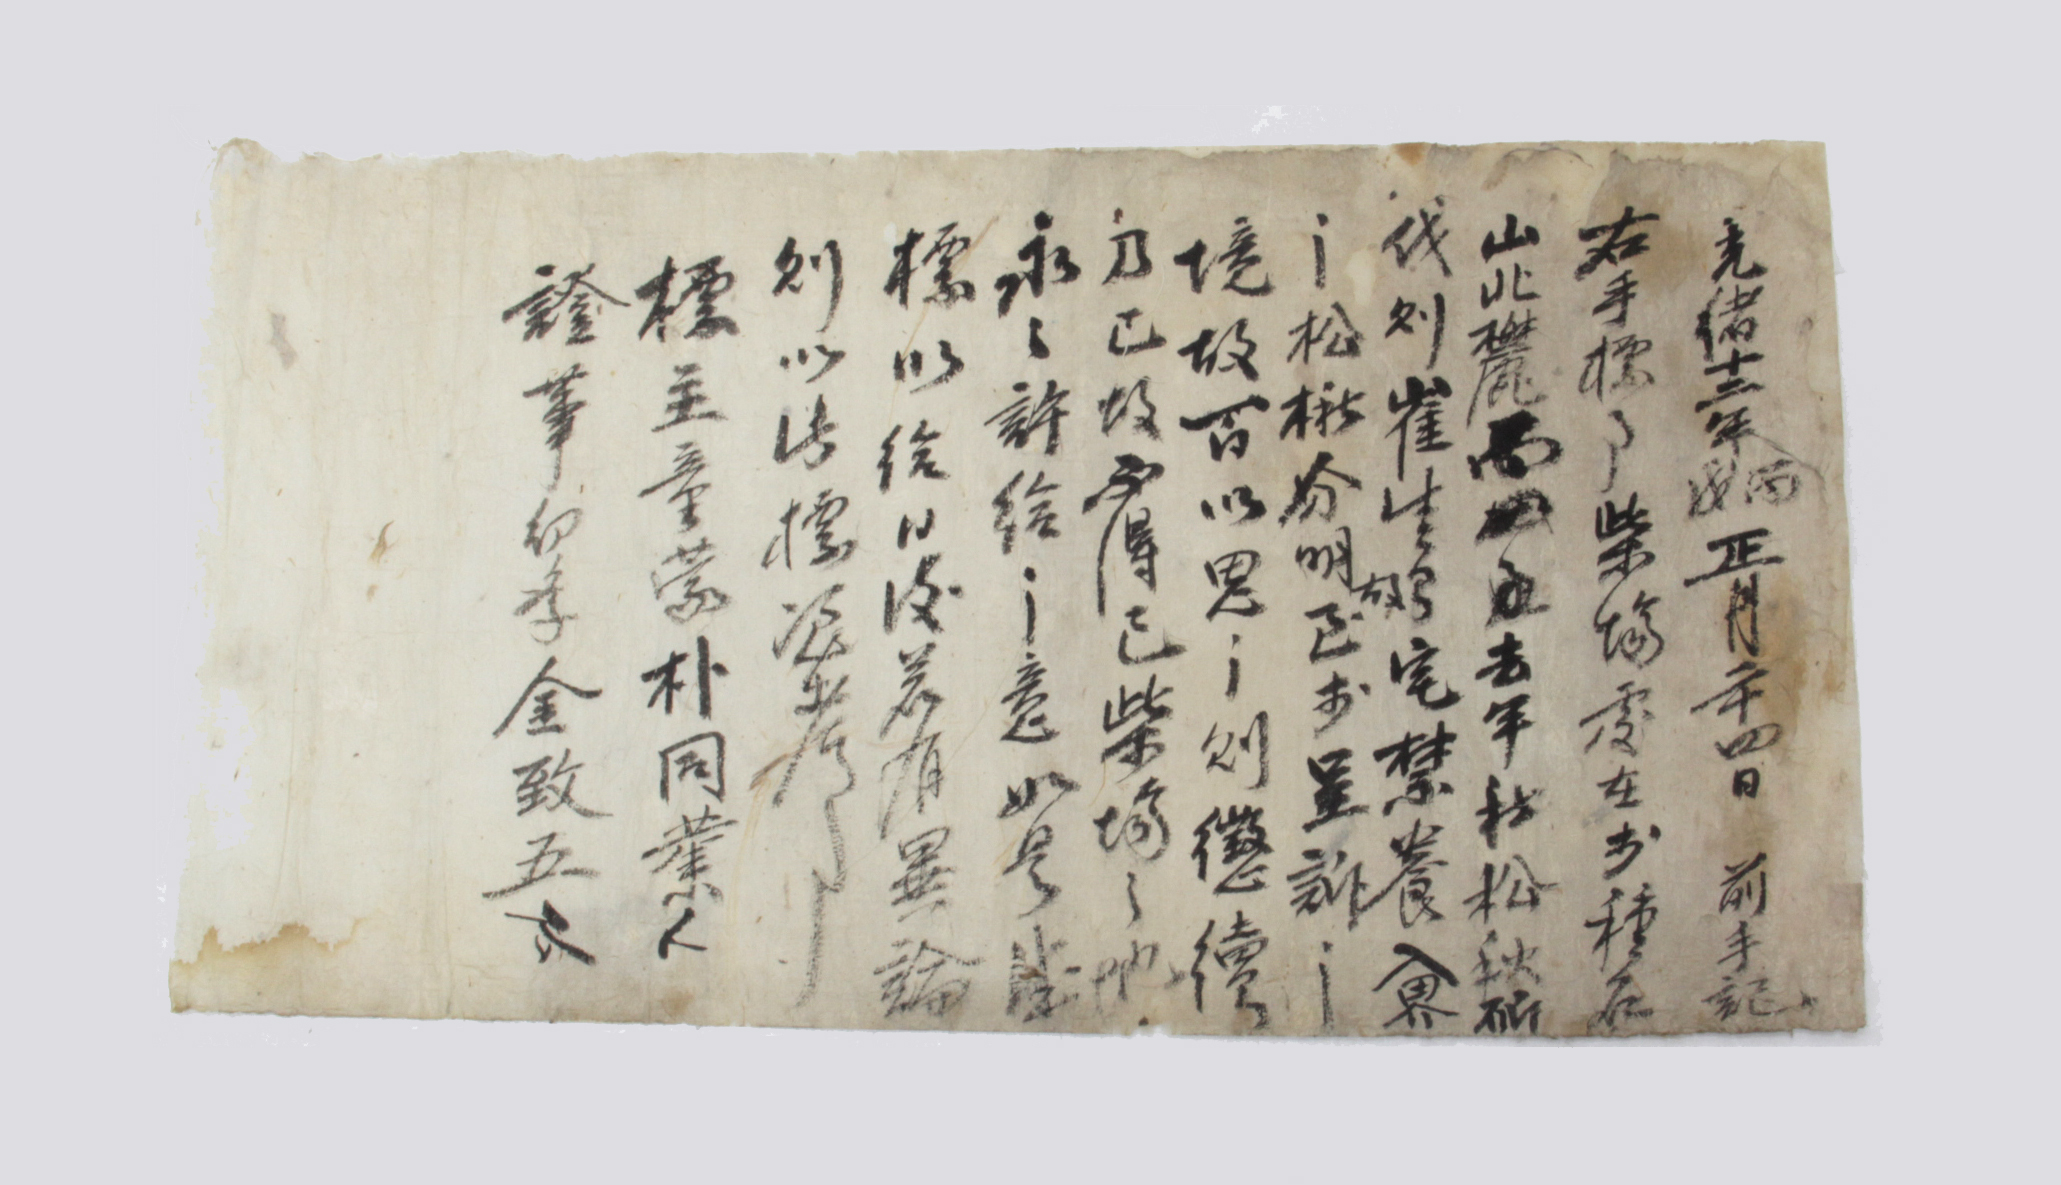 光緒十二年丙戌正月二十四日 前手記
右手標段柴場處在於種石
山北麓而去年秋松秋斫
伐則崔生員宅禁養界
之松楸分明故至於呈訴之
境故百以思之則懲續
乃已故不得已柴場之地
永永許給之意如是成
標以給日後若有異論
則以此標憑考事
標主童蒙朴同業人
證筆幼學金致五